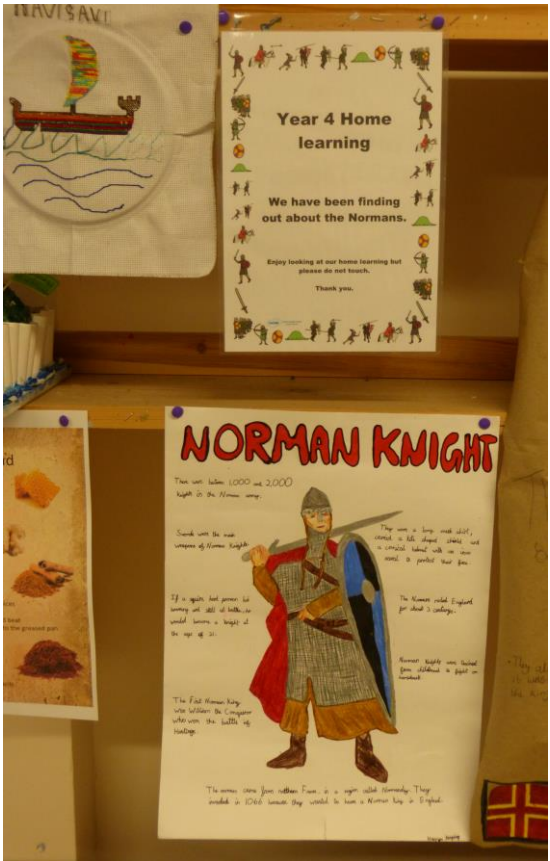 NAVISAVI
Year 4 Home
learning
We have been finding
out about the Normans.
Enjoy looking at our home learning but
please do not touch.
Thank you.
NORMAN KNIGHT
There were between 1,000 and 2,000
knights in the Norman army.
Swords were the main
weapons of Norman Knights.
If a squire had proven his
bravery and skill at battle, he
would become a knight at
the age of 21.
The First Norman King
was William the Conqueror
who won the battle of
Hastings.
They wore a long mail shirt,
carried a kite shaped shield and
a conical helmet with an iron
to protect their face.
The Normans ruled England
for about
Norman Knights were trained
from childhood to fight on
horseback.
The came from northern in a region called Normandy. They
invaded in 1066 because they wanted to have a Norman King in England.
to the greased pan.